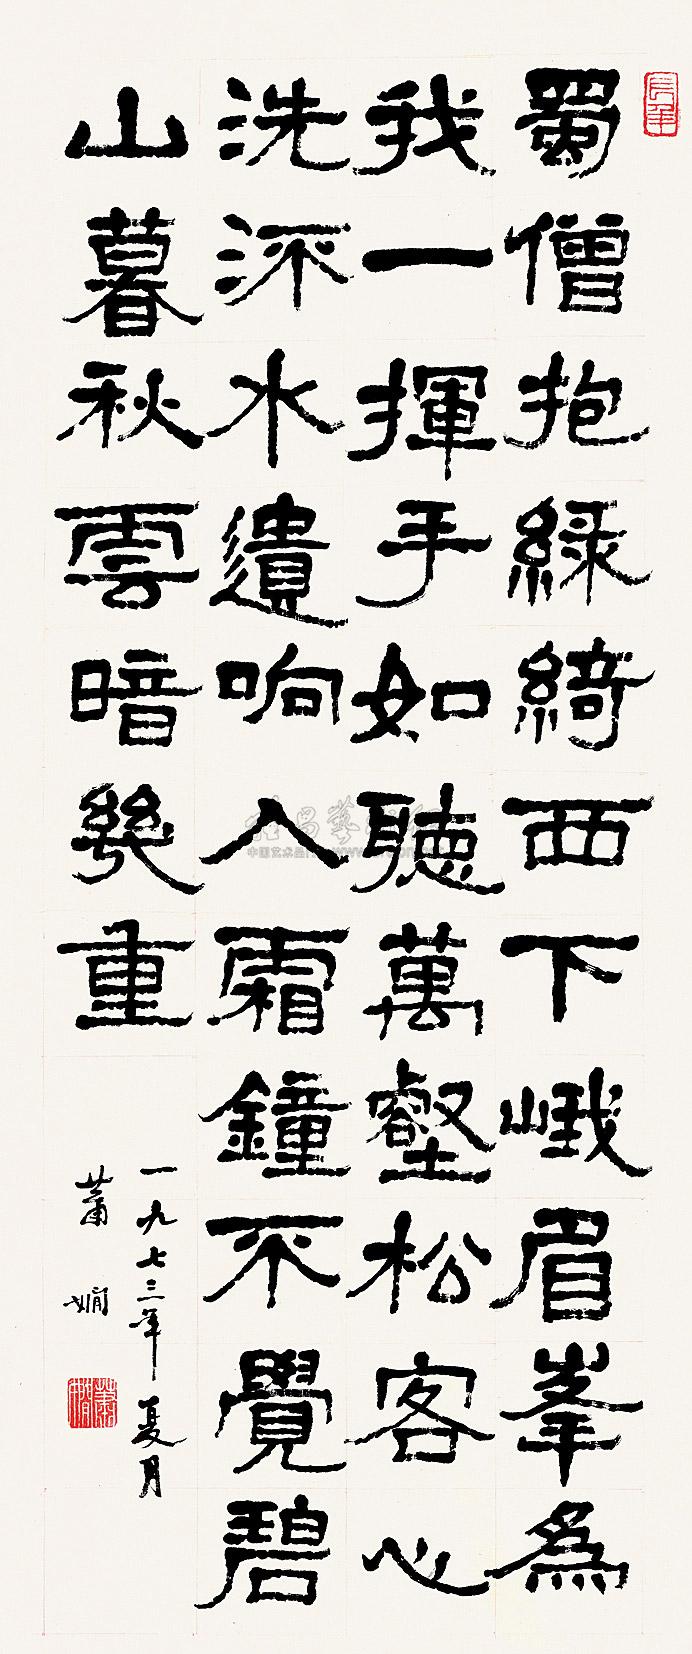 蜀僧抱綠綺西下峨眉峯為
我一揮手如聽萬壑松客心
洗流水遺响入霜鐘不覺碧
山暮秋雲暗幾重
一九七三年夏月
蕭嫻